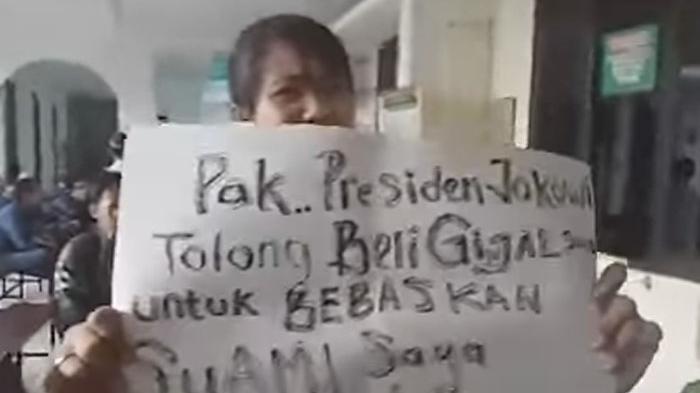 Pak.. Presiden Jokowi
Tolong Beli Ginjal Saya
untuk BEBASKAN
SUAMI Saya